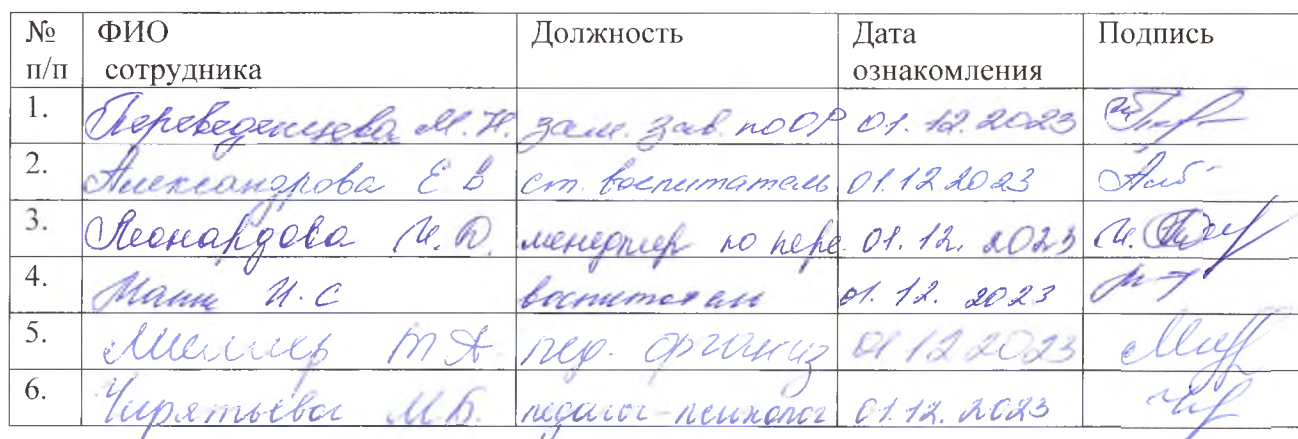 № ФИО Должность Дата Подпись
п/п сотрудника ознакомления
1. Переведенцева М. Н. зам. зав. по ОР 01. 12. 2023
2. Александрова Е В ст. воспитатель 01.12 2023
3. Леонардова И. О. менеджер по пере. 01. 12. 2023
4. Манн И. С воспитател 01. 12. 2023
5. Миллер Т А. пед. организ 01 12 2023
6. Чирятьева М.Б. педагог-психолог 01.12. 2023